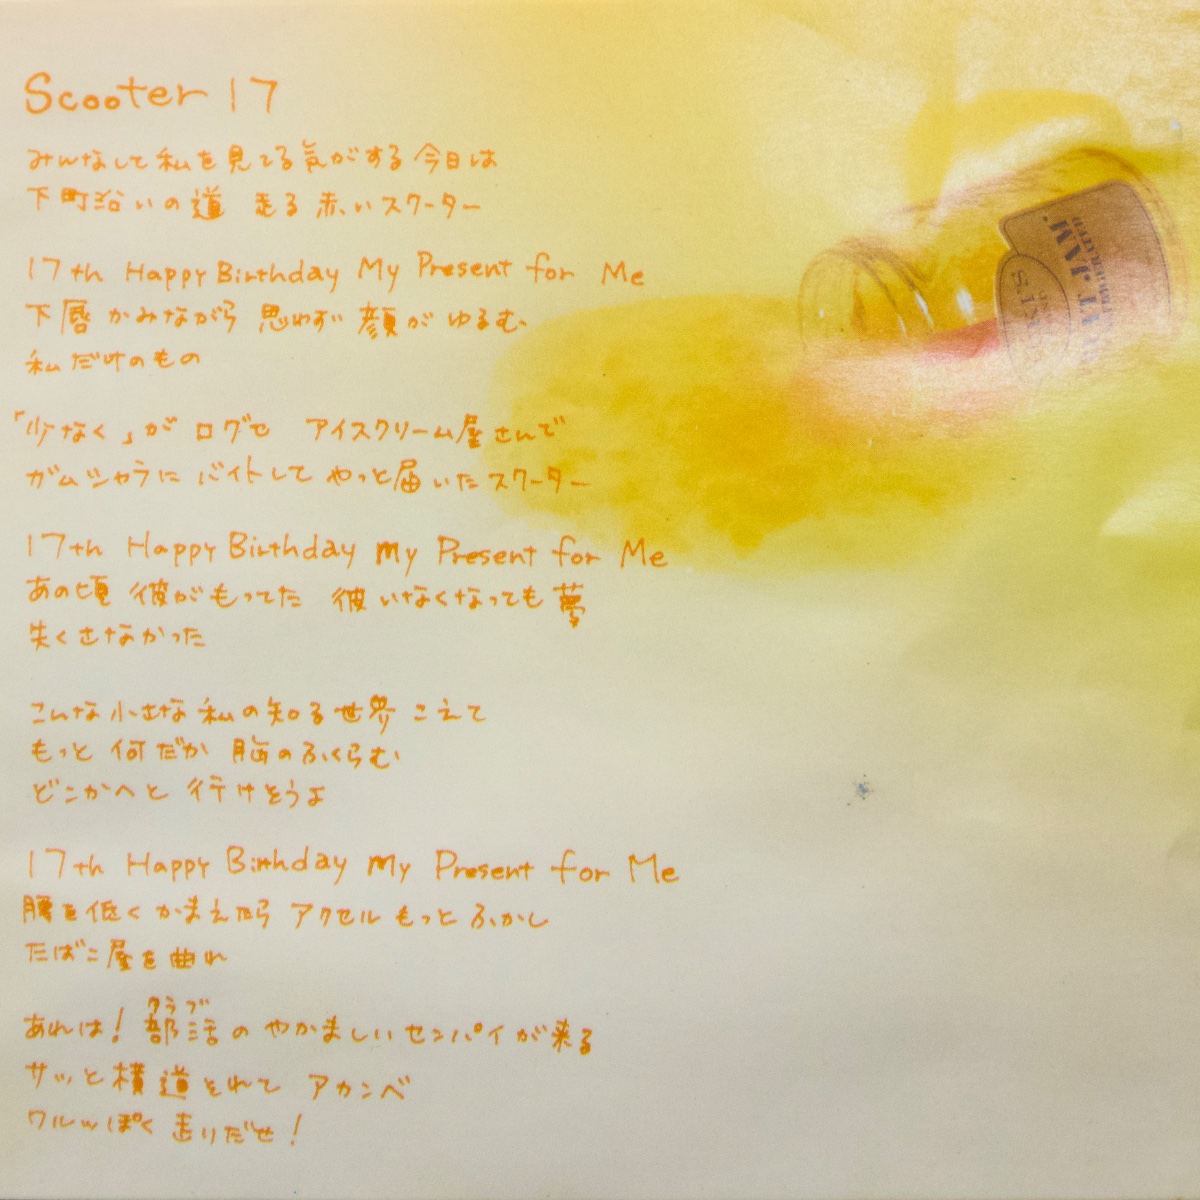 Scooter 17
みんなして私を見てる気がする今日は
下町沿いの道 走る赤いスクーター
17th Happy Birthday My Present for Me
下唇かみながら 思わず 顔が ゆるむ
私だけのもの
「少なく」がログセ アイスクリーム屋さんで
ガムシャラに バイトして やっと届いたスクーター
17th Happy Birthday My Present for Me
あの頃 彼がもってた 彼いなくなっても夢
失くさなかった
こんな小さな私の知る世界 こえて
もっと 何だか 胸のふくらむ
どこかへと 行けそうよ
17th Happy Birthday My Present for Me
腰を低くかまえたら アクセル もっと ふかし
たばこ屋を曲れ
クラブ
あれは! 部活の やかましいセンパイが来る
サッと横道それて アカンベ
ワルッぽく 走りだせ!
JAM